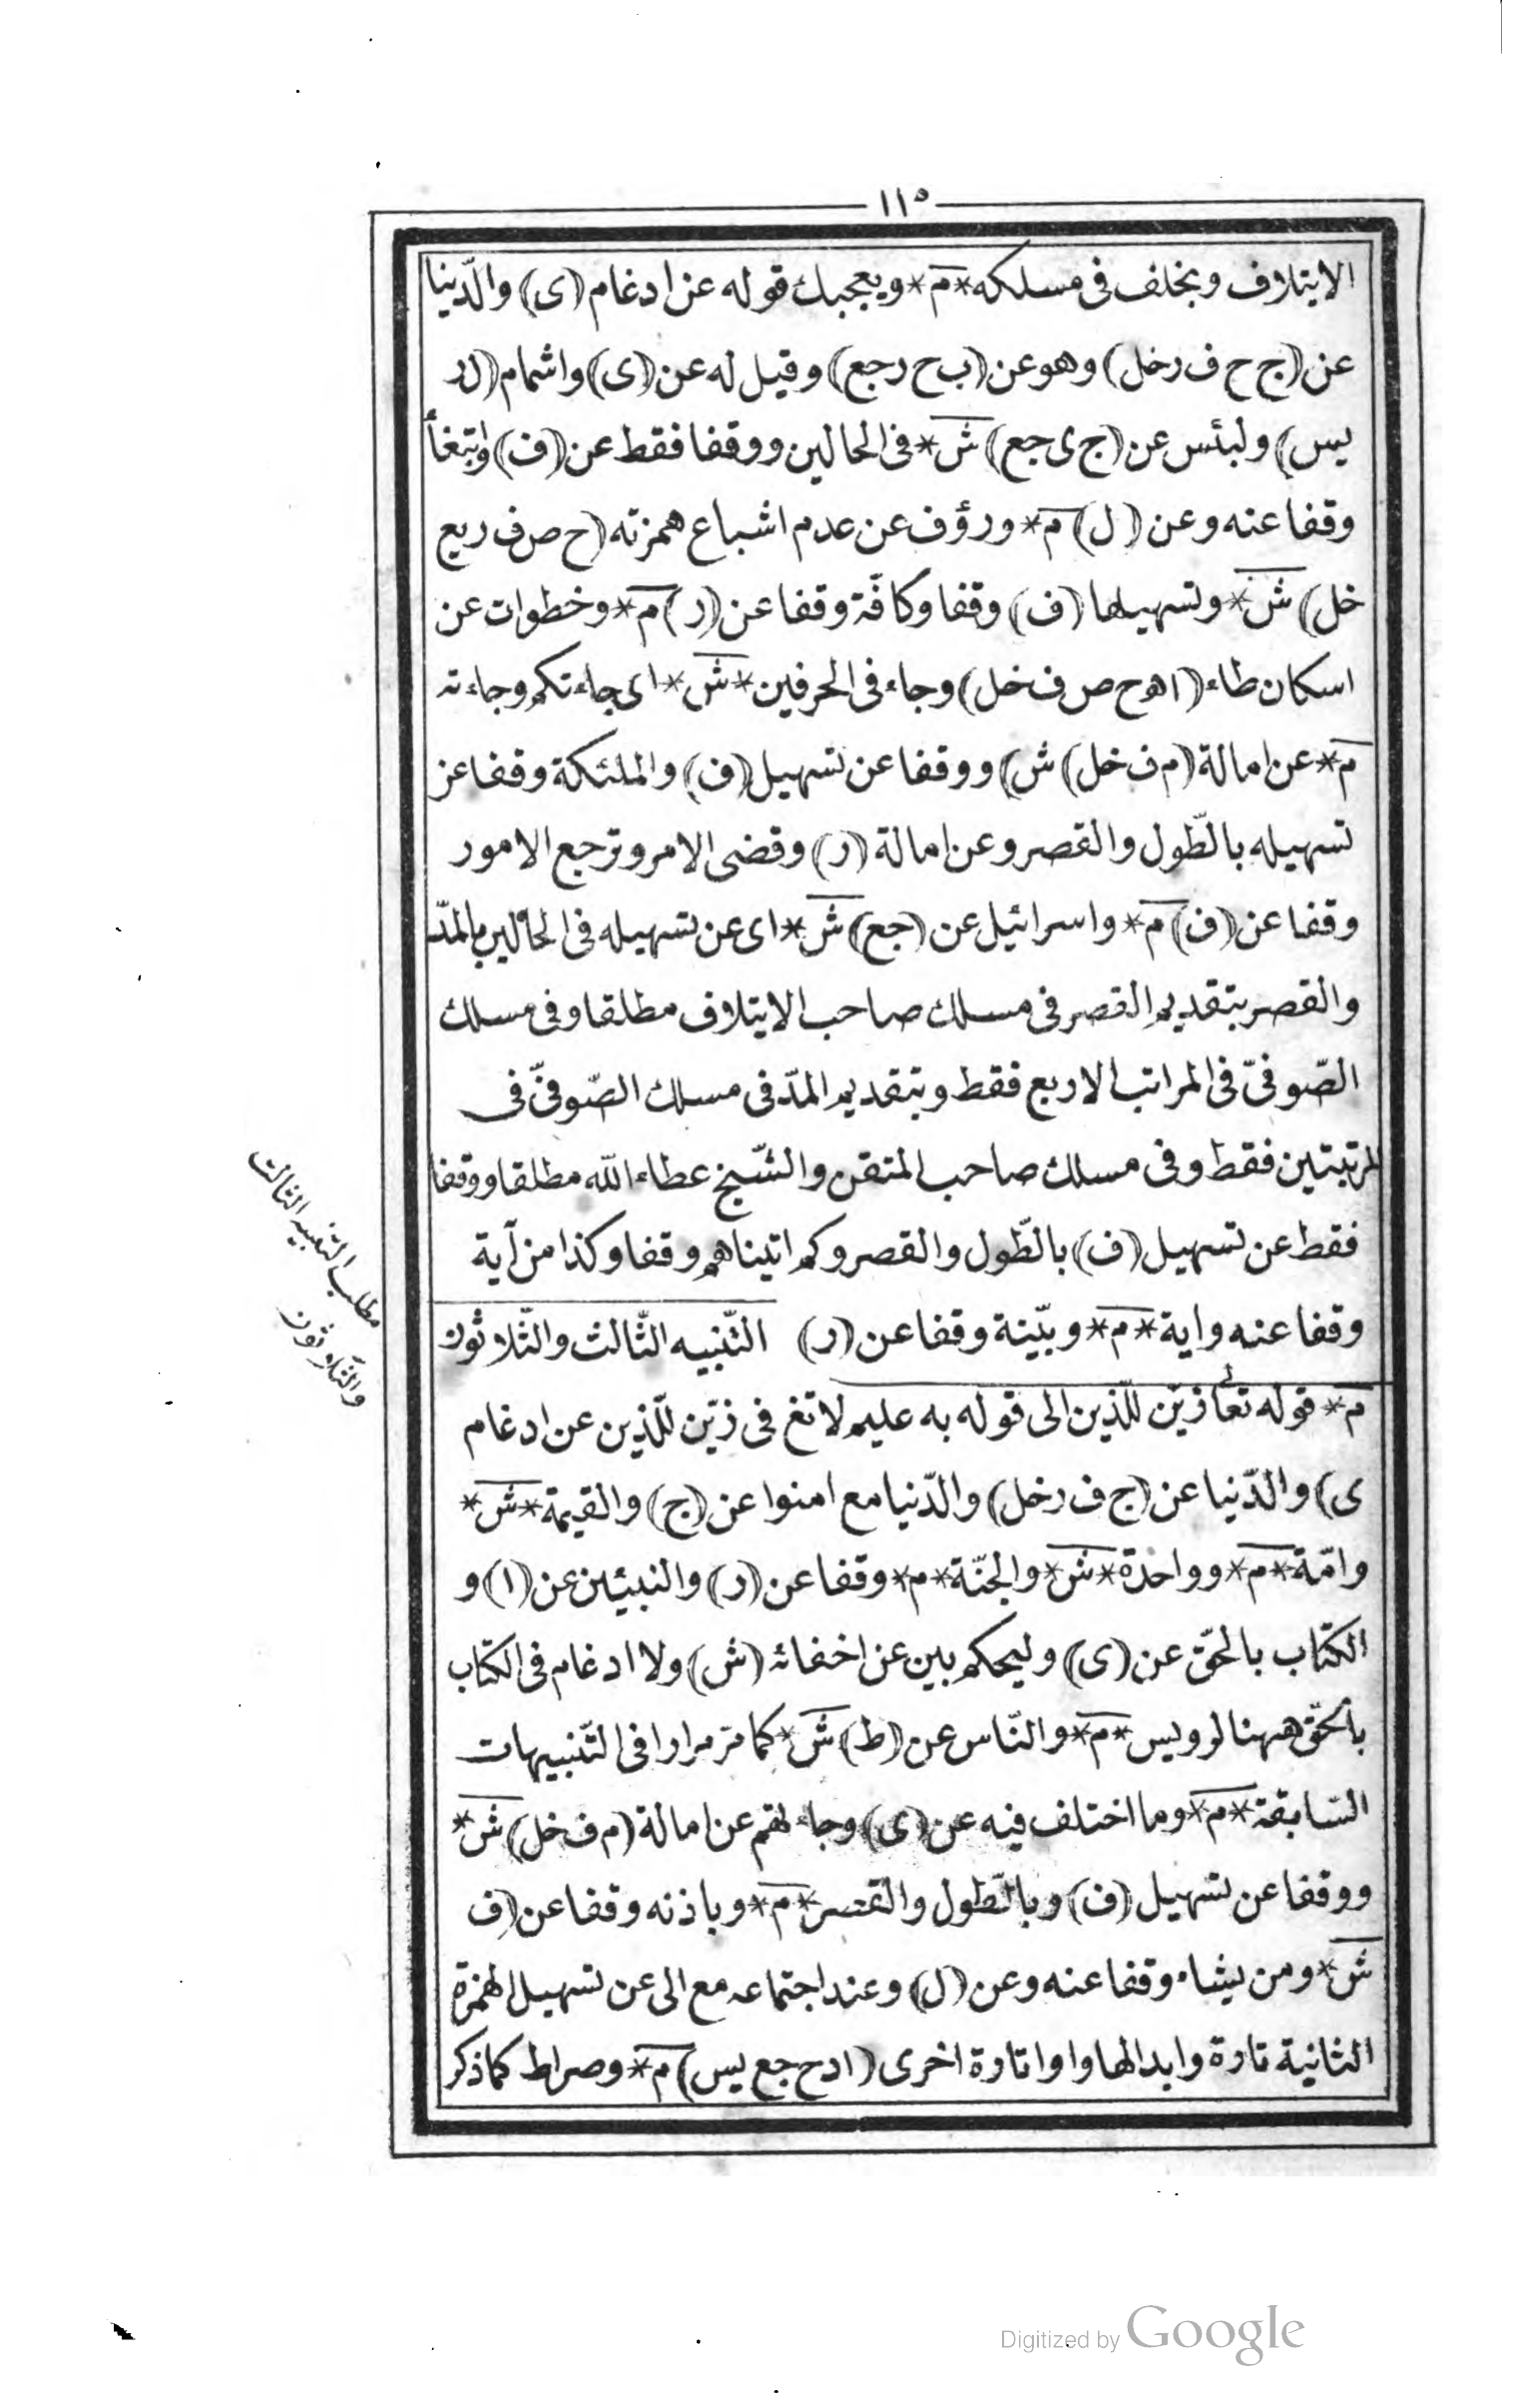 ١١٥
الايتلاف وبخلف فى مسلكه * م * ويعجبك قوله عن ادغام (ى) والدّنيا
عن (ج ح ف ر خل) وهو عن (ب ح ر جع) وقيل له عن (ى) واشمام (ل ر
يس) ولبئس عن (ج ى جع) ش * فى الحالين ووقفا فقط عن (ف) وابتغاء
وقفا عنه وعن (ل) م * ورؤف عن عدم اشباع همزته (ح ص ف ر يع
خل) ش * وتسهيلها (ف) وقفا وكافّة وقفا عن (ر) م * وخطوات عن
اسكان طاء (ا ه ح ص ف خل) وجاء فى الحرفين * ش * اى جاءتكم وجاءته
م * عن امالة (م ف خل) ش) ووقفا عن تسهيل (ف) والملئكة وقفا عن
تسهيله بالطّول والقصر وعن امالة (ر) وقضى الامر وترجع الامور
وقفا عن (ف) م * واسرائيل عن (جع) ش * اى عن تسهيله فى الحالين بالمدّ
والقصر بتقديم القصر فى مسلك صاحب الايتلاف مطلقا وفى مسلك
الصّوفىّ فى المراتب الاربع فقط وبتقديم المدّ فى مسلك الصّوفىّ فى
المرتبتين فقط وفى مسلك صاحب المتقن والشّيخ عطاء الله مطلقا ووقفا
فقط عن تسهيل (ف) بالطّول والقصر وكم اتيناهم وقفا وكذا من آية
وقفا عنه واية * م * وبيّنة وقفا عن (ر) التّنبيه الثّالث والثّلاثون
م * قوله تعالى زيّن للّذين الى قوله به عليم لا تغ فى زيّن للّذين عن ادغام
ى) والدّنيا عن (ج ف ر خل) والدّنيا مع امنوا عن (ج) والقيمة * ش *
وامّة * م * وواحدة * ش * والجنّة * م * وقفا عن (ر) والنبيئين عن (ا) و
الكتاب بالحقّ عن (ى) وليحكم بين عن اخفائه (ش) ولا ادغام فى الكتاب
بالحقّ ههنا لرويس * م * والنّاس عن (ط) ش * كما مرّ مرارا فى التّنبيهات
السّابقة * م * وما اختلف فيه عن (ى) وجاءتهم عن امالة (م ف خل) ش *
ووقفا عن تسهيل (ف) وبالطّول والقصر * م * وباذنه وقفا عن (ف
ش * ومن يشاء وقفا عنه وعن (ل) وعند اجتماعه مع الى عن تسهيل الهمزة
الثانية تارة وابدالها واوا تارة اخرى (ا د ح جع يس) م * وصراط كما ذكر
مطلب التّنبيه الثّالث
والثّلاثون
Digitized by Google